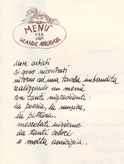 MENÙ
PER UNA
GRANDE AMICIZIA
Nove artisti
si sono incontrati
intorno ad una tavola imbandita
realizzando un menù
con tanti ingredienti:
la poesia, la musica,
la pittura.
mescolati insieme
da tanti colori
e molta amicizia.